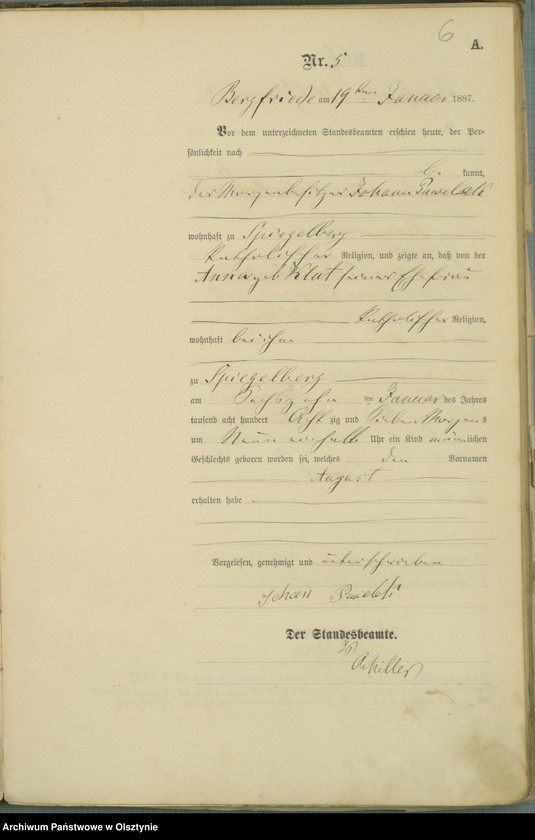 6
A.
Nr. 5
Bergfriede am 19ten Januar 1887.
Vor dem unterzeichneten Standesbeamten erschien heute, der Per-
sönlichkeit nach
be kannt,
der Morgenbesitzer Johann Pawelski
wohnhaft zu Spiegelberg
katholischer Religion, und zeigte an, daß von der
Anna geb Klut seiner Ehefrau
katholischer Religion,
wohnhaft bei ihm
zu Spiegelberg
am Sechszehn ten Januar des Jahres
tausend acht hundert Acht zig und Sieben Morgens
um Neun einhalb Uhr ein Kind männlichen
Geschlechts geboren worden sei, welches den Vornamen
August
erhalten habe
Vorgelesen, genehmigt und unterschrieben
Johan
Der Standesbeamte.
Archiwum Państwowe w Olsztynie